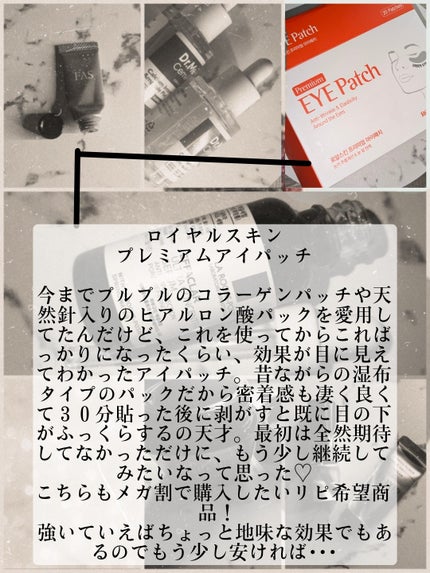 FAS
Dr.
Premium
EYE Patch
Anti-Wrinkle & Elasticity
Around the Eyes
ロイヤルスキン
プレミアムアイパッチ
今までプルプルのコラーゲンパッチや天
然針入りのヒアルロン酸パックを愛用し
てたんだけど、これを使ってからこれば
っかりになったくらい、効果が目に見え
てわかったアイパッチ。昔ながらの湿布
タイプのパックだから密着感も凄く良く
て３０分貼った後に剥がすと既に目の下
がふっくらするの天才。最初は全然期待
してなかっただけに、もう少し継続して
みたいなって思った♡
こちらもメガ割で購入したいリピ希望商
品！
強いていえばちょっと地味な効果でもあ
るのでもう少し安ければ・・・